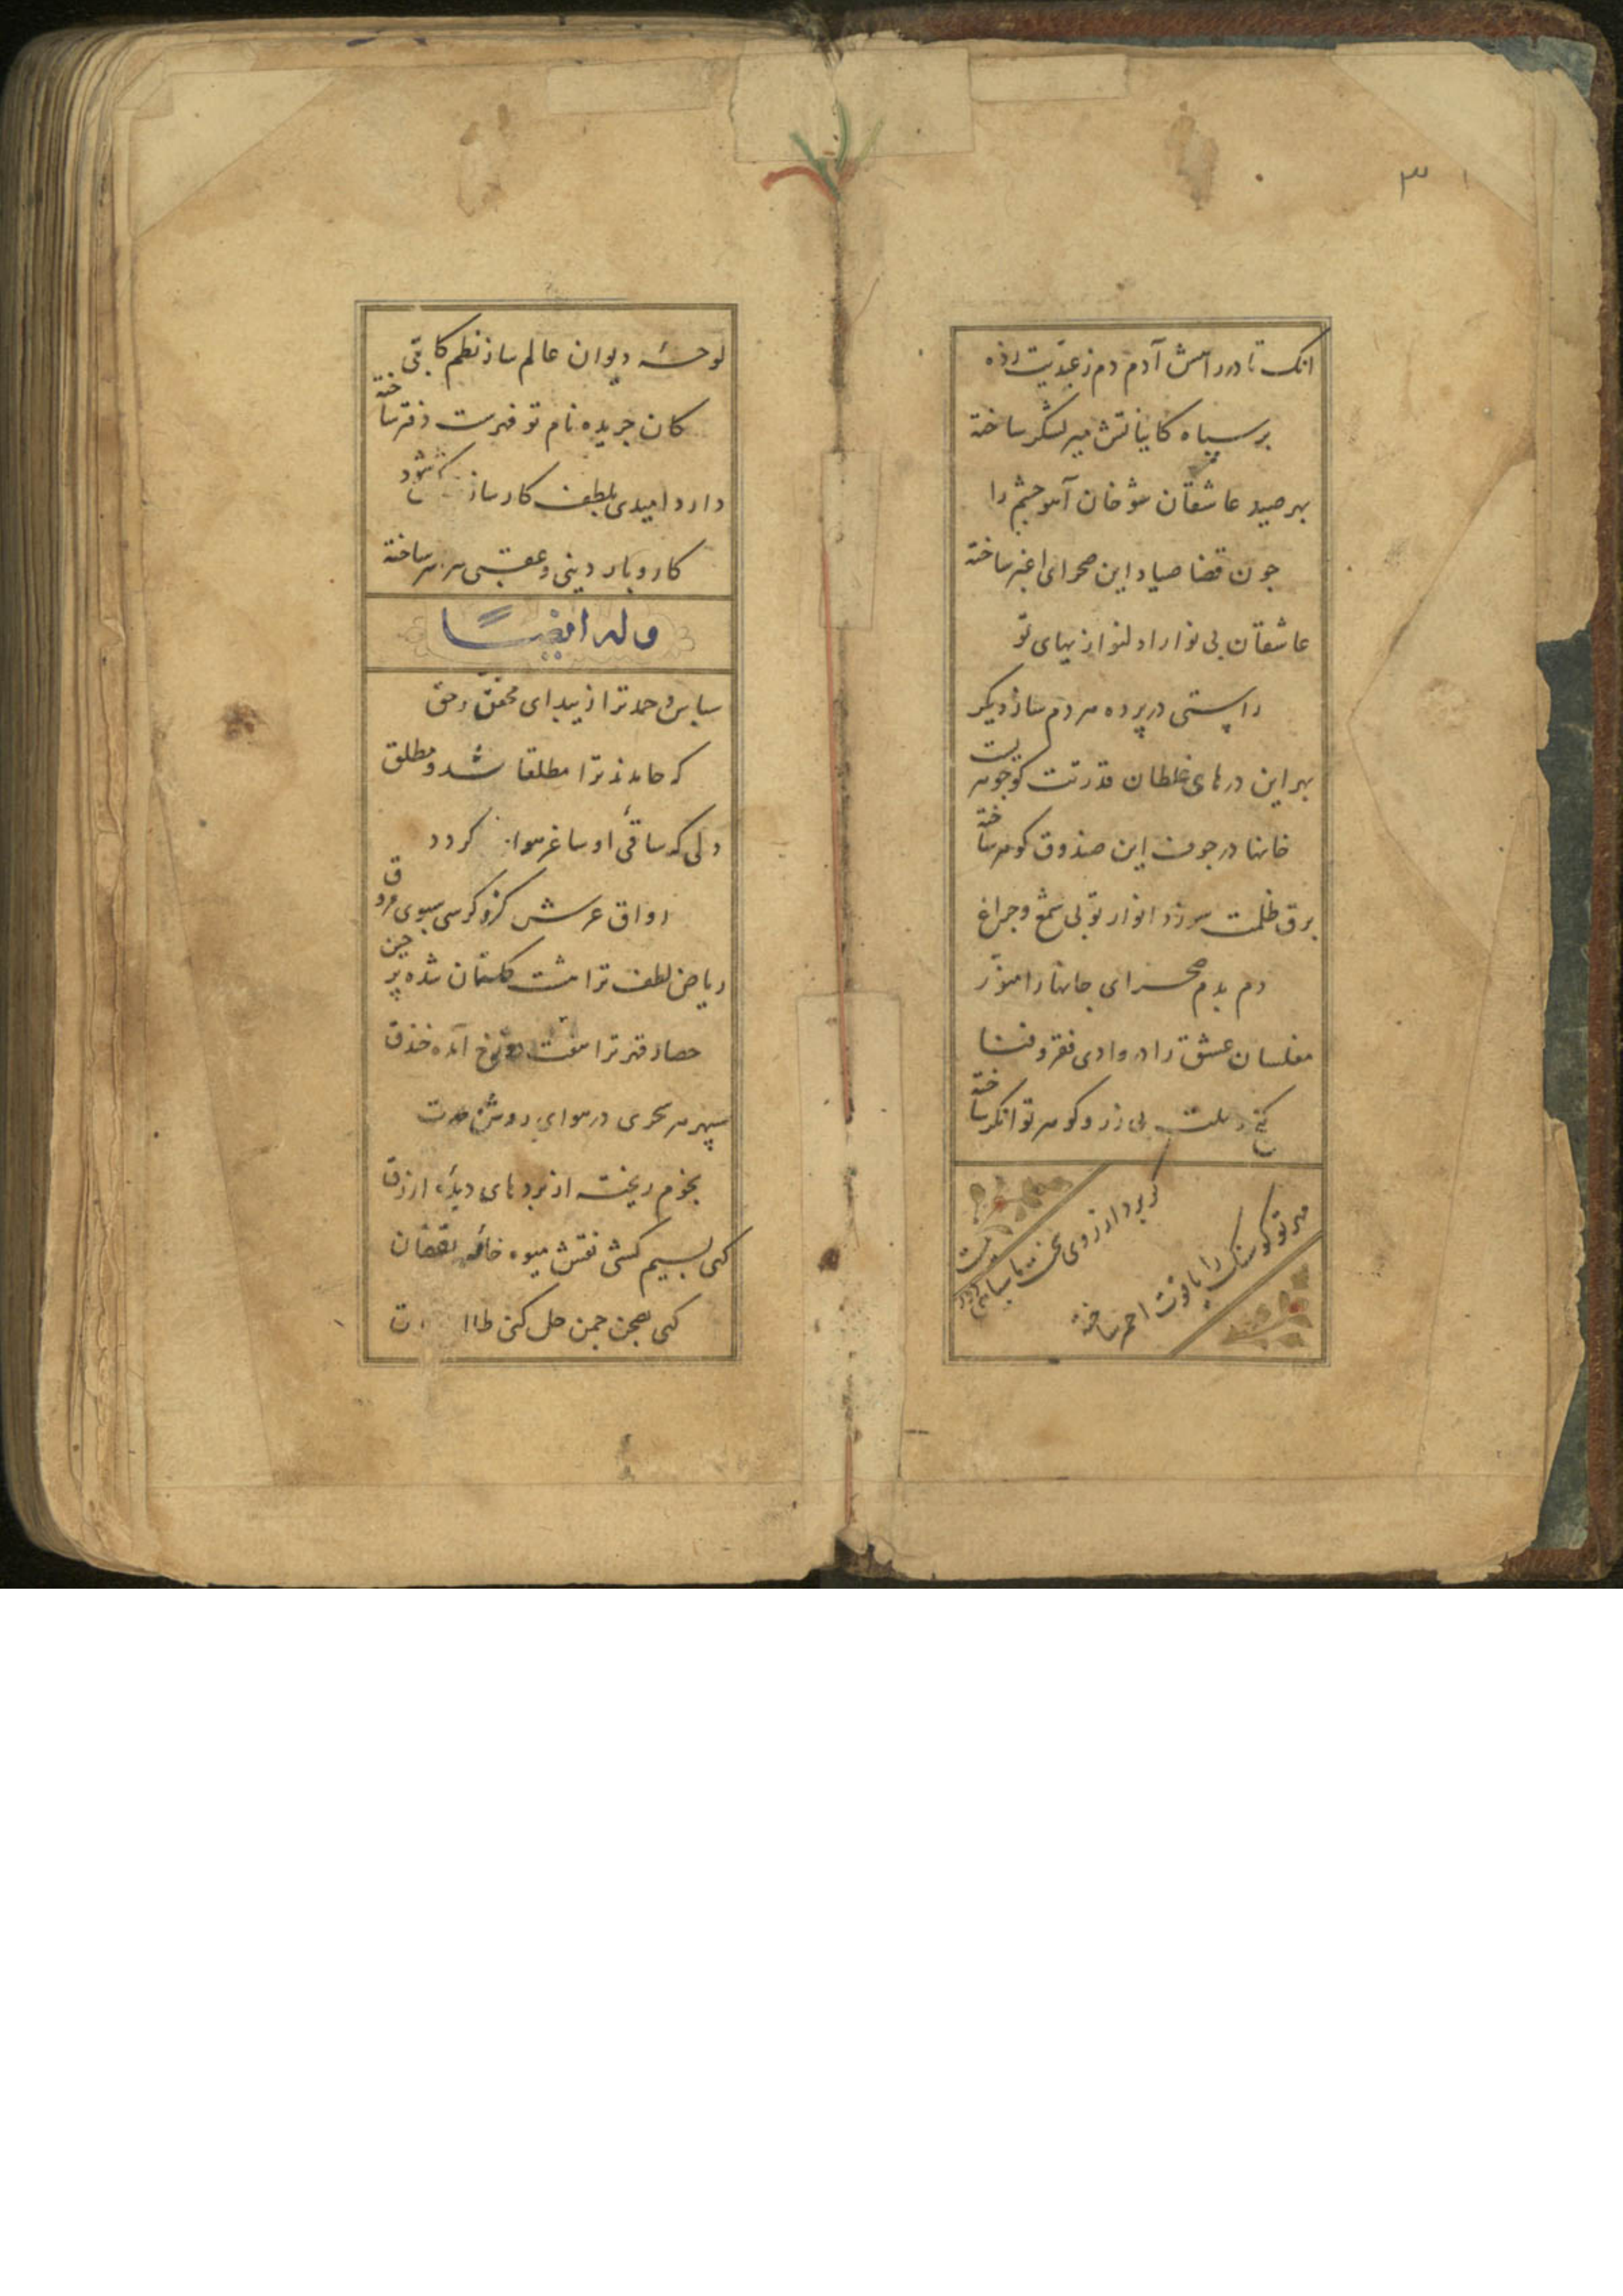 ۳
انک تا در راهش آدم دم ز عبدیت زده
بر سپاه کایناتش میر لشکر ساخته
بهر صید عاشقان شوخان آهو چشم را
جون قضا صیاد این صحرای اغبر ساخته
عاشقان بی نوا را دلنوازیهای تو
راستی در پرده هر دم ساز دیکر
بهر این درهای غلطان قدرتت کوجوهریست
خانها در جوف این صندوق کوهر ساخته
برق ظلمت سوزد انوار تو بی شمع و جراغ
دم بدم صحرای جانها را منور
مفلسان عشق را در وادی فقر و فنا
بی زر و کوهر توانکر ساخته
مهر تو کو سنک را یاقوت احمر ساخته
کر برد از روی بخت ما سیاهی دور نیست
لوحهٔ دیوان عالم ساز نظم کافی
کان جریده نام تو فهرست دفتر ساخته
دارد امیدی بلطف کارساز شود
کار و بار دینی و عقبی سر بسر ساخته
وله ایضا
سپاس و حمد ترا زیبد ای محقق حق
که حامد ترا مطلقا شد و مطلق
دلی که ساقی او ساغر کردد
رواق عرش کزو کرسی سوی
ریاض لطف ترا هشت کلستان شده پرچین
حصار قهر ترا هفت دوزخ آمده خندق
سپهر هر سحری در هوای روشن
نجوم ریخته از بردهای دیدهٔ ازرق
کهی بسیم کشی نقش میوه
کهی بصحن جمن حل کنی